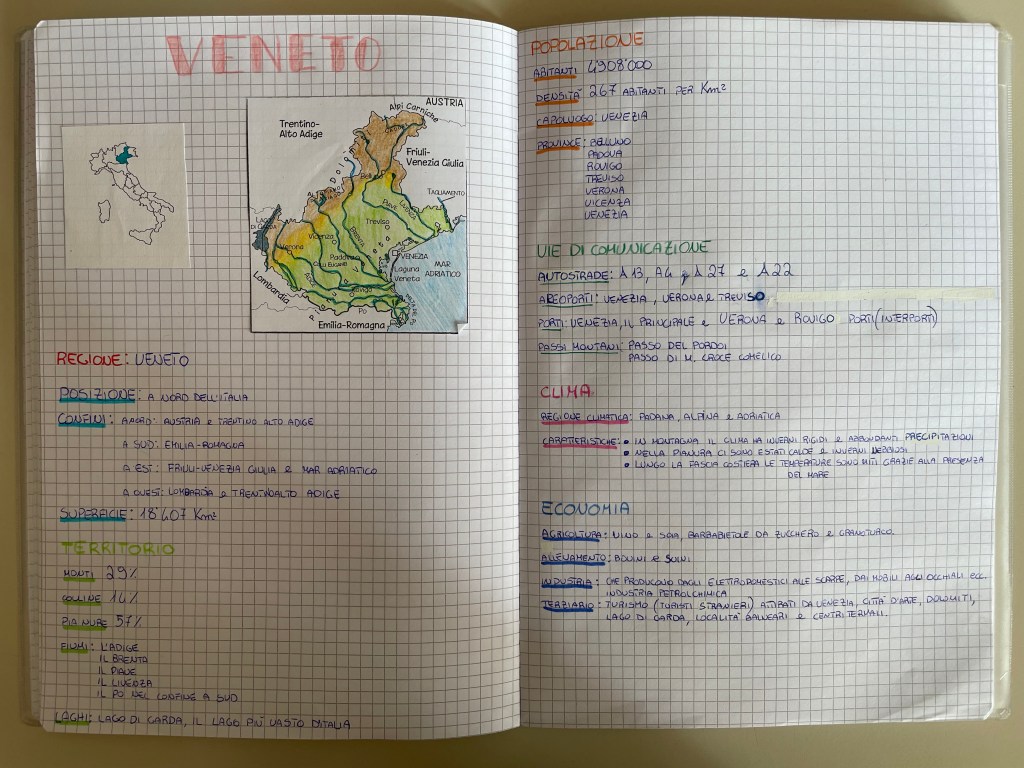 VENETO
AUSTRIA
Alpi Carniche
Trentino-
Alto Adige
Friuli-
Venezia Giulia
TAGLIAMENTO
LAGO
DI GARDA
Piave
Livenza
Treviso
Vicenza
Verona
Padova
COLLI EUGANEI
VENEZIA
Laguna
Veneta
MAR
ADRIATICO
Lombardia
Rovigo
Po
Emilia-Romagna
REGIONE: VENETO
POSIZIONE: A NORD DELL'ITALIA
CONFINI: A NORD: AUSTRIA e TRENTINO ALTO ADIGE
A SUD: EMILIA-ROMAGNA
A EST: FRIULI-VENEZIA GIULIA e MAR ADRIATICO
A OVEST: LOMBARDIA e TRENTINOALTO ADIGE
SUPERFICIE: 18'407 Km²
TERRITORIO
MONTI 29%
COLLINE 14%
PIANURE 57%
FIUMI: L'ADIGE
IL BRENTA
IL PIAVE
IL LIVENZA
IL PO NEL CONFINE A SUD
LAGHI: LAGO DI GARDA, IL LAGO PIÙ VASTO D'ITALIA
POPOLAZIONE
ABITANTI 4'908'000
DENSITÀ 267 ABITANTI PER Km²
CAPOLUOGO: VENEZIA
PROVINCE: BELLUNO
PADOVA
ROVIGO
TREVISO
VERONA
VICENZA
VENEZIA
VIE DI COMUNICAZIONE
AUTOSTRADE: A13, A4, A27 e A22
AREOPORTI: VENEZIA, VERONA e TREVISO
PORTI: VENEZIA, IL PRINCIPALE e VERONA e ROVIGO PORTI (INTERPORTI)
PASSI MONTANI: PASSO DEL PORDOI
PASSO DI M. CROCE COMELICO
CLIMA
REGIONE CLIMATICA: PADANA, ALPINA e ADRIATICA
CARATTERISTICHE: • IN MONTAGNA IL CLIMA HA INVERNI RIGIDI e ABBONDANTI PRECIPITAZIONI
• NELLA PIANURA CI SONO ESTATI CALDE e INVERNI NEBBIOSI
• LUNGO LA FASCIA COSTIERA LE TEMPERATURE SONO MITI GRAZIE ALLA PRESENZA
DEL MARE
ECONOMIA
AGRICOLTURA: VINO e SOIA, BARBABIETOLE DA ZUCCHERO e GRANOTURCO.
ALLEVAMENTO: BOVINI e SUINI
INDUSTRIA: CHE PRODUCONO DAGLI ELETTRODOMESTICI ALLE SCARPE, DAI MOBILI AGLI OCCHIALI ecc.
INDUSTRIA PETROLCHIMICA
TERZIARIO: TURISMO (TURISTI STRANIERI) ATTIRATI DA VENEZIA, CITTÀ D'ARTE, DOLOMITI,
LAGO DI GARDA, LOCALITÀ BALNEARI e CENTRI TERMALI.